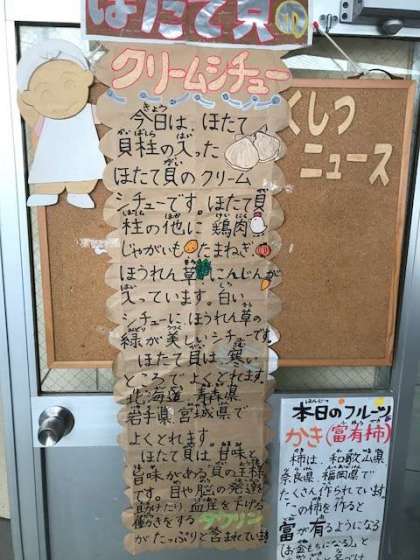 ほたて貝
クリームシチュー
今日は、ほたて
貝柱の入った
ほたて貝のクリーム
シチューです。ほたて貝
柱の他に鶏肉
じゃがいも たまねぎ、
ほうれん草 にんじんが
入っています。白い
シチューに、ほうれん草の
緑が美しいシチューです。
ほたて貝は寒い
ところでよくとれます。
北海道 青森県
岩手県 宮城県で
よくとれます。
ほたて貝は、甘味と
旨味がある貝の王様
です。目や脳の発達を
助けたり 血圧を下げる
働きをする タウリン
がたっぷりと含まれています
くしつ
ニュース
本日のフルーツ
かき(富有柿)
柿は、和歌山県
奈良県、福岡県で
たくさん作られています
「この柿を作ると
富が有るようになる